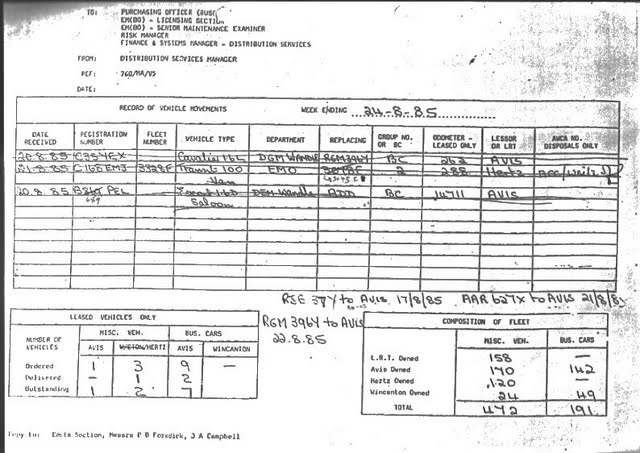 TO: PURCHASING OFFICER (BUS)
EM(BO) - LICENSING SECTION
EM(BO) - SENIOR MAINTENANCE EXAMINER
RISK MANAGER
FINANCE & SYSTEMS MANAGER - DISTRIBUTION SERVICES
FROM: DISTRIBUTION SERVICES MANAGER
REF: 760/MA/VS
DATE:
RECORD OF VEHICLE MOVEMENTS WEEK ENDING 24-8-85
DATE RECEIVED REGISTRATION NUMBER FLEET NUMBER VEHICLE TYPE DEPARTMENT REPLACING GROUP NO. OR BC ODOMETER - LEASED ONLY LESSOR OR LRT DISPOSALS ONLY
20.8.85 Cavalier 16L DGM WANDLE RGM 396Y BC 262 AVIS
21-8-85 3328F Transit 100 Van EMO 2 288 Hertz
20.8.85 PEL Saloon DEM Wandle ADD BC 14711 AVIS
RJE 37Y to AVIS 17/8/85 AAR 627X to AVIS 21/8/85
RGM 396Y to AVIS
22.8.85
LEASED VEHICLES ONLY
NUMBER OF VEHICLES MISC. VEH. BUS. CARS
AVIS HERTZ AVIS WINCANTON
Ordered 1 3 9 —
Delivered — 1 2
Outstanding 1 2 7
COMPOSITION OF FLEET
MISC. VEH. BUS. CARS
L.R.T Owned 158 —
Avis Owned 170 142
Hertz Owned 120 —
Wincanton Owned 24 49
TOTAL 472 191
Copy to: Costs Section, Messrs J A Campbell